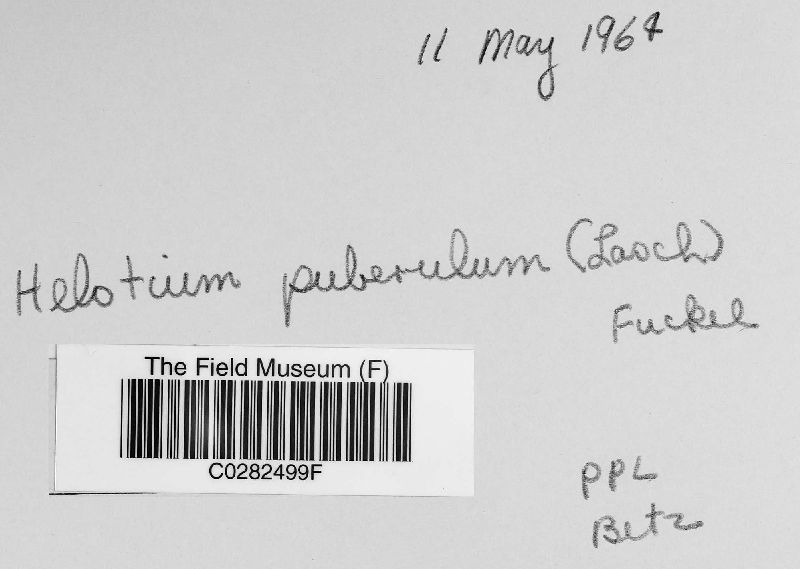 11 May 1964
Helotium puberulum (Lasch)
Fuckel
The Field Museum (F)
C0282499F
PPL
Betz